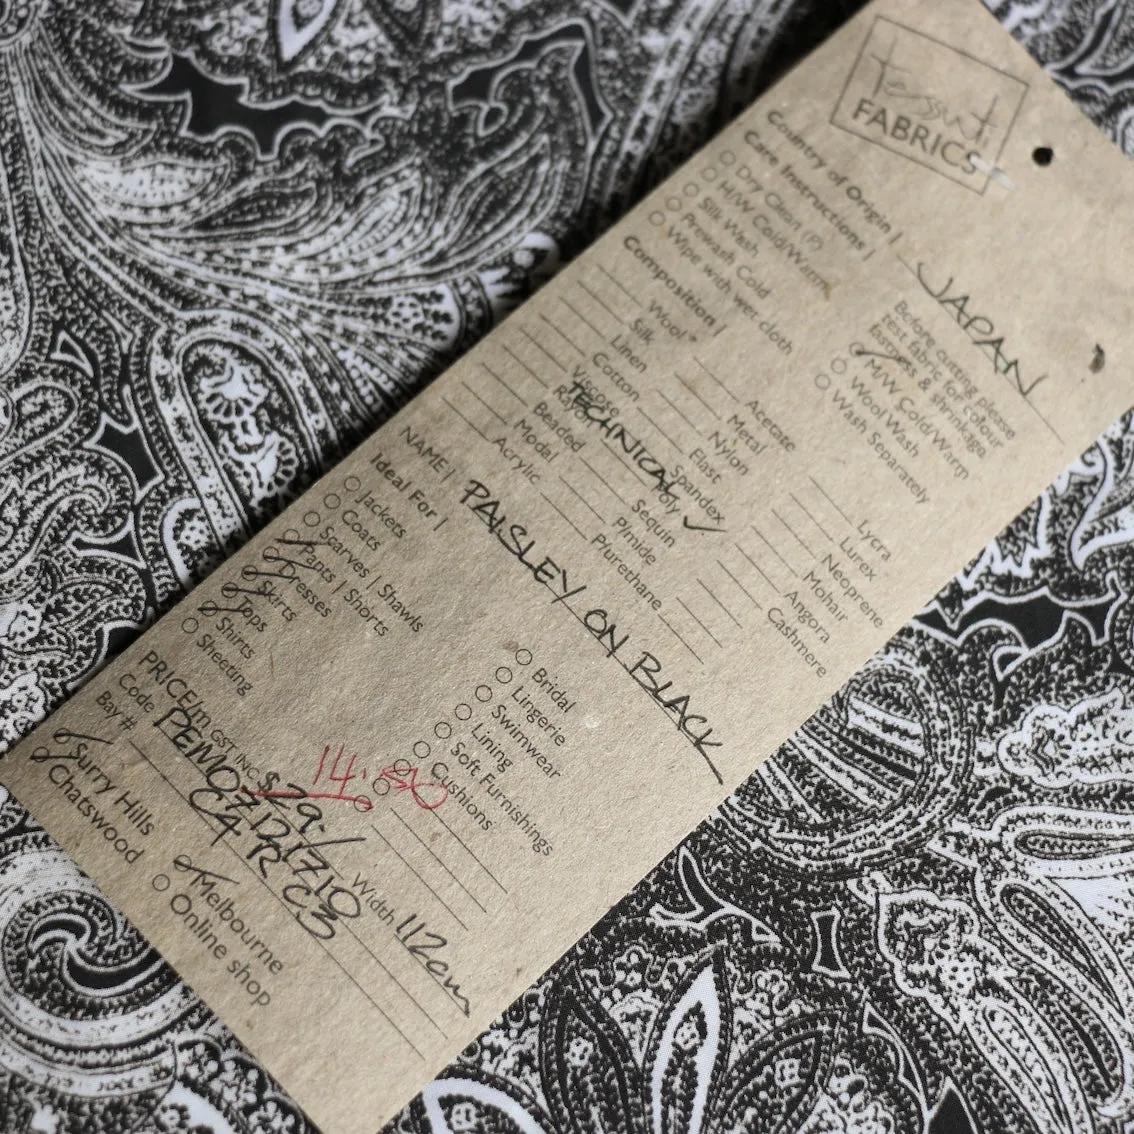 tessuti
FABRICS
Country of Origin | JAPAN
Care Instructions |
Dry Clean (P)
H/W Cold/Warm
Silk Wash
Prewash Cold
Wipe with wet cloth
Before cutting please
test fabric for colour
fastness & shrinkage.
M/W Cold/Warm
Wool Wash
Wash Separately
Composition |
Wool
Silk
Linen
Cotton
Viscose
Rayon
Beaded
Modal
Acrylic
TECHNICAL
Acetate
Metal
Nylon
Flast
Spandex
Poly
Sequin
P/mide
P/urethane
Lycra
Lurex
Neoprene
Mohair
Angora
Cashmere
NAME | PAISLEY ON BLACK
Ideal For |
Jackets
Coats
Scarves | Shawls
Pants | Shorts
Dresses
Skirts
Tops
Shirts
Sheeting
Bridal
Lingerie
Swimwear
Lining
Soft Furnishings
Cushions
PRICE/m GST INC $29.- 14.50 Width 112cm
Code
Bay # C4 R C3
Surry Hills
Chatswood
Melbourne
Online shop